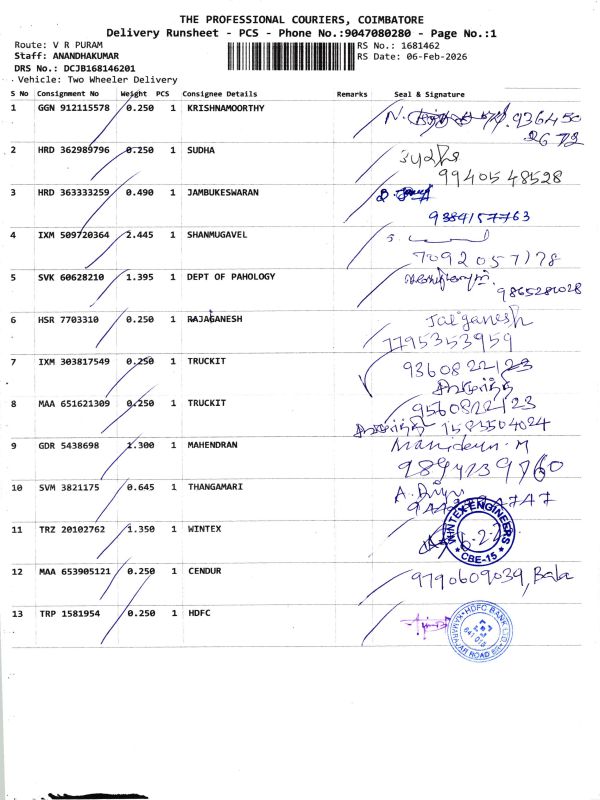 THE PROFESSIONAL COURIERS, COIMBATORE
Delivery Runsheet - PCS - Phone No.:9047080280 - Page No.:1
Route: V R PURAM RS No.: 1681462
Staff: ANANDHAKUMAR RS Date: 06-Feb-2026
DRS No.: DCJB168146201
Vehicle: Two Wheeler Delivery
S No Consignment No Weight PCS Consignee Details Remarks Seal & Signature
1 GGN 912115578 0.250 1 KRISHNAMOORTHY N. 936450
2672
2 HRD 362989796 0.250 1 SUDHA சுதா
9940548528
3 HRD 363333259 0.490 1 JAMBUKESWARAN
9384157763
4 IXM 509720364 2.445 1 SHANMUGAVEL S.
7092057178
5 SVK 60628210 1.395 1 DEPT OF PAHOLOGY
9865281028
6 HSR 7703310 0.250 1 RAJAGANESH Jaiganesh
7795353959
7 IXM 303817549 0.250 1 TRUCKIT 9360822123
8 MAA 651621309 0.250 1 TRUCKIT 9560822123
1585504024
9 GDR 5438698 1.300 1 MAHENDRAN
9894239760
10 SVM 3821175 0.645 1 THANGAMARI A.
11 TRZ 20102762 1.350 1 WINTEX WINTEX ENGINEERS
CBE-15
12 MAA 653905121 0.250 1 CENDUR 9790609039, Bala
13 TRP 1581954 0.250 1 HDFC HDFC BANK LTD
KAMARAJAR ROAD BR
641 015